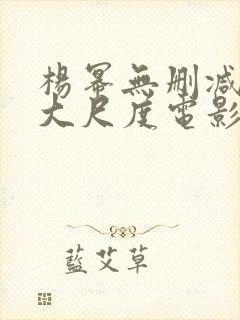 楊冪無刪減
大尺度電影
藍艾草